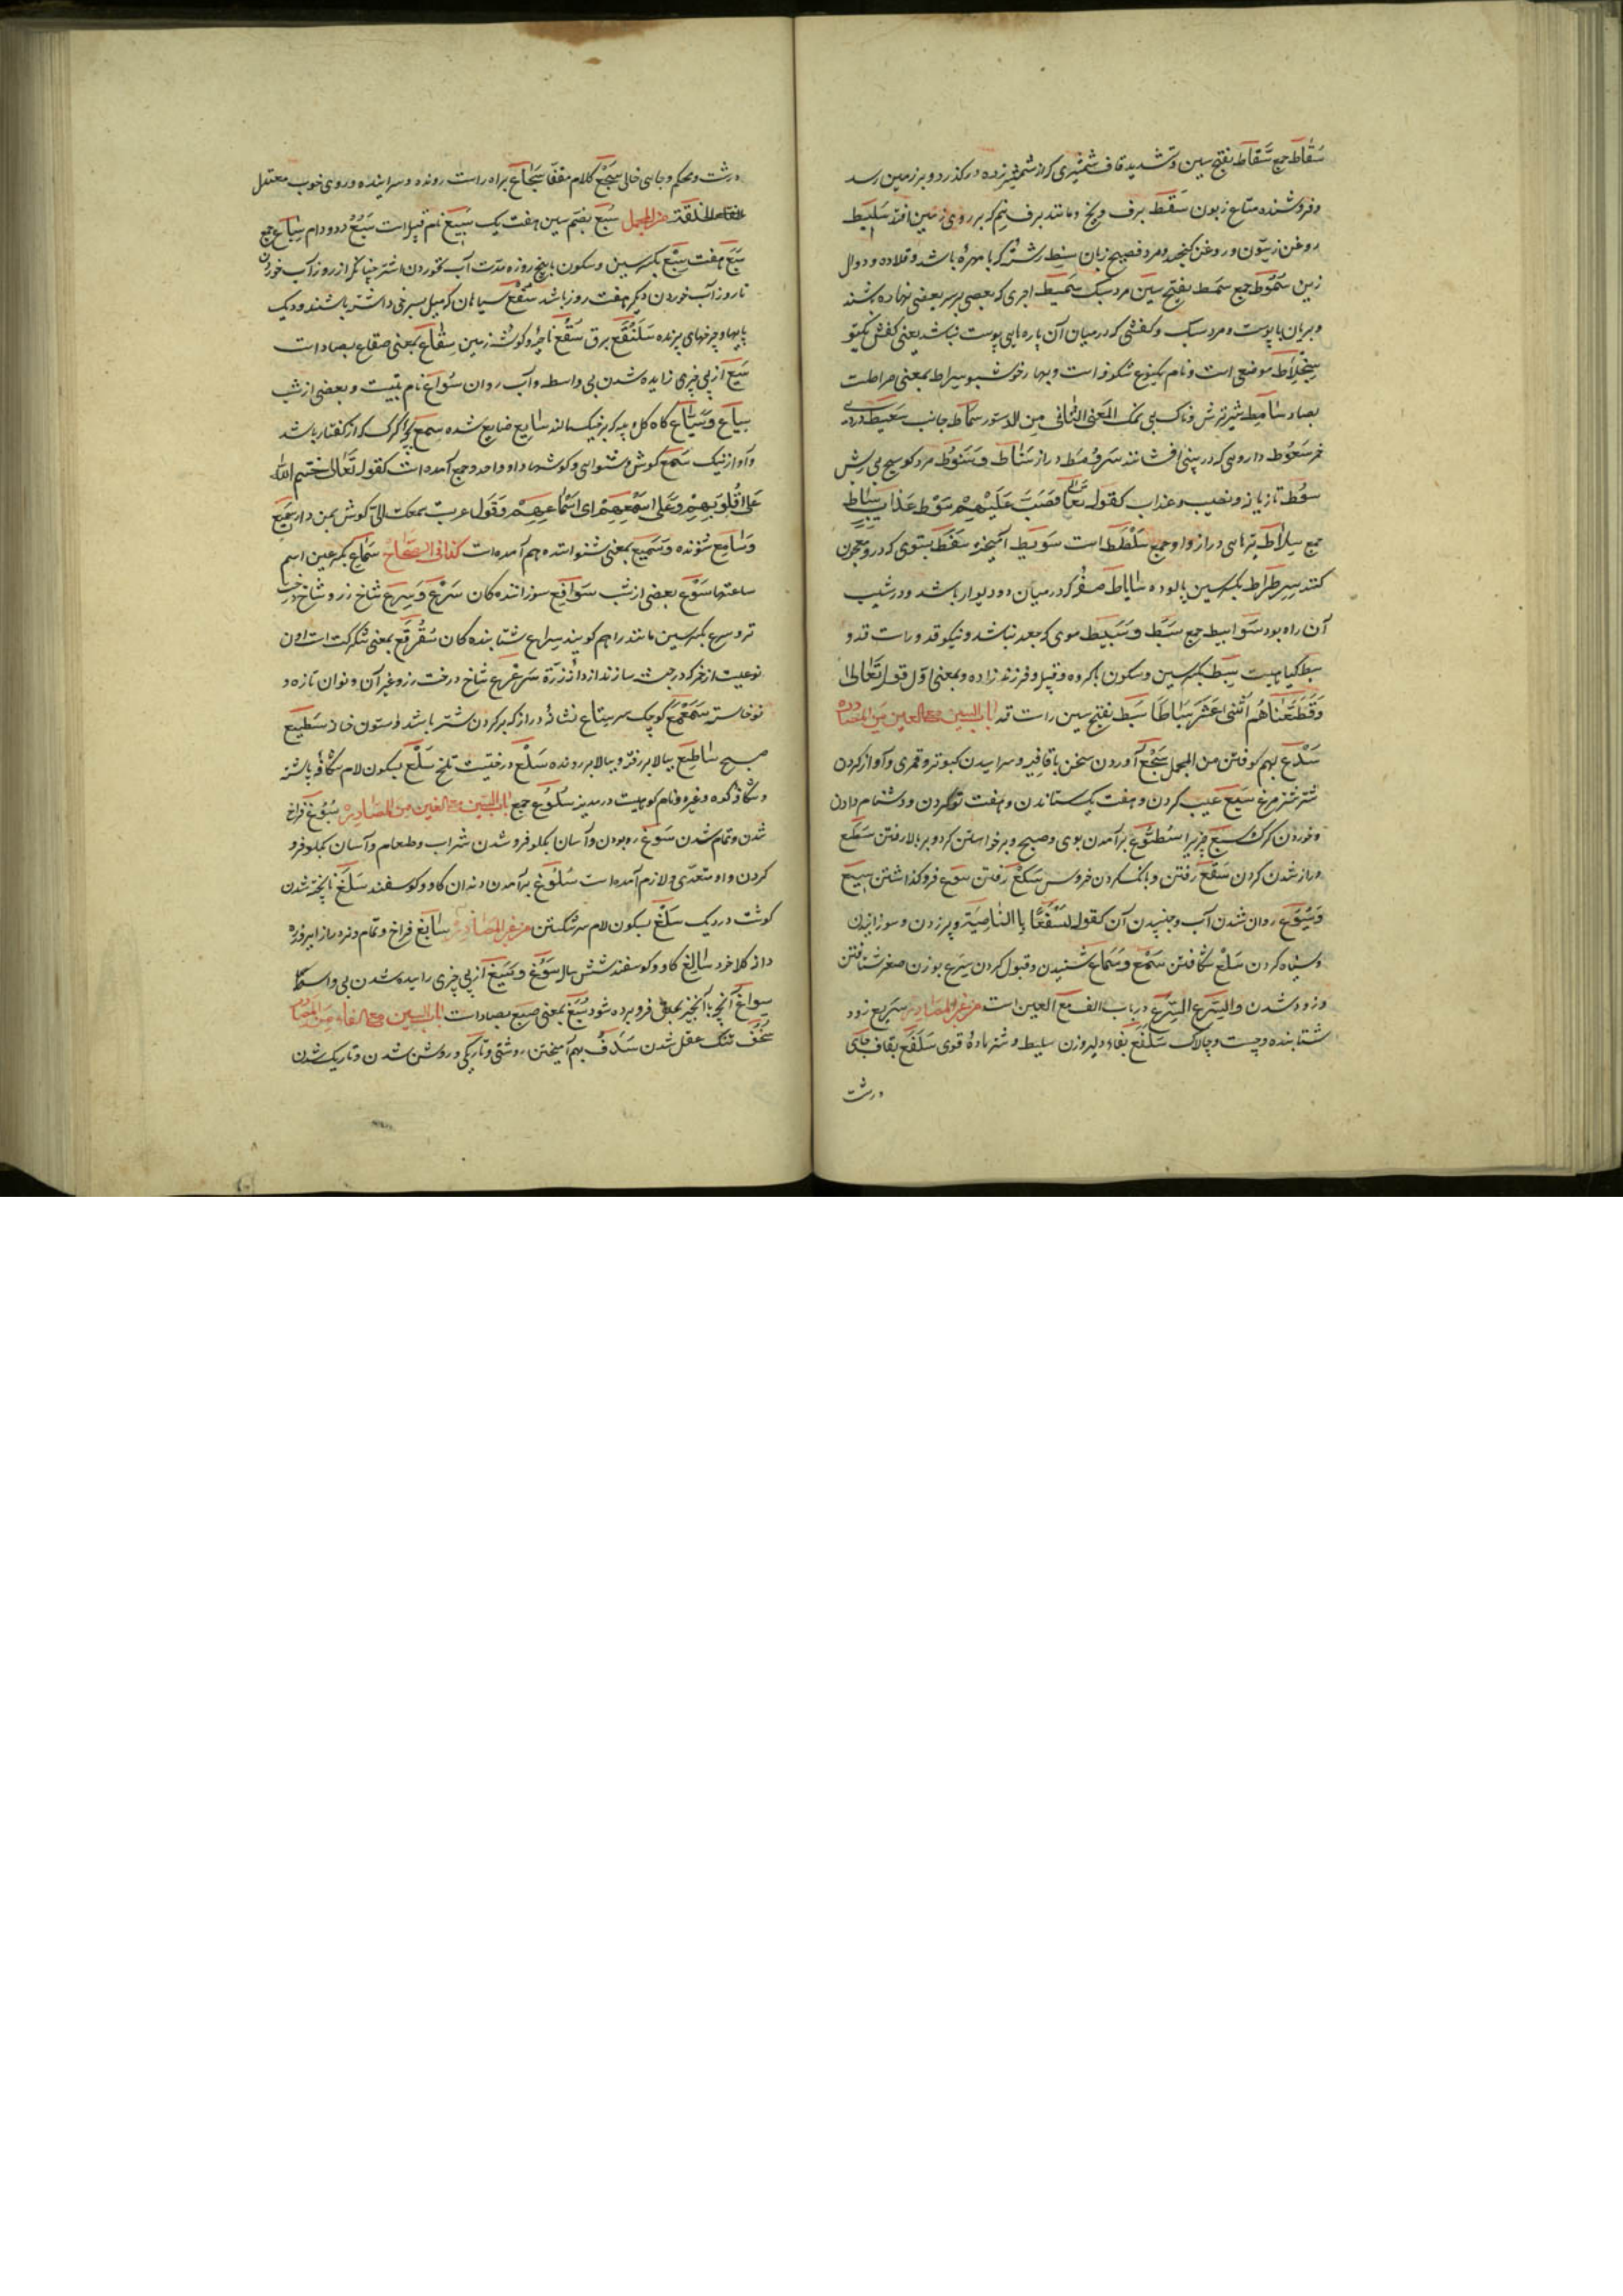 سقاط جمع سقاط بفتح سین و تشدید قاف شمشیری که از شمشیر زده درگذرد و بر زمین رسد
و فروشنده متاع زبون سقط برف و یخ و مانند برف نیم که بر روی زمین افتد سلیط
روغن زیتون و روغن کنجد و مرد فصیح زبان سمط رشته که با مهره باشد و قلاده و دوال
زین سموط جمع سمط بفتح سین مرد سبک سمیط اجری که بعضی بر سر بعضی نهاده باشند
و بریان با پوست و مرد سبک و کفشی که در میان آن پاره های پوست نباشد یعنی کفش یکتو
سجلاط موضعی است و نام یکنوع شکوفه است و بهار خوشبو سراط بمعنی صراطست
بصاد سامط شیر ترش و خاک بی نمک المعنی الثانی من الدستور سماط جانب سعیط دردی
خمر سعوط داروئی که در بینی افشانند سرومط دراز سناط و سنوط مرد کوسج بی ریش
سوط تازیانه و نصیب و عذاب کقوله تعالی فصب علیهم سوط عذاب سیاط
جمع سلاط تیرهای دراز واو جمع سلطط است سویط آمیخته سفط سبوی که در و معجون
کنند سرطراط بکسر سین پالوده ساباط صفه که در میان دو دیوار باشد و در شیب
آن راه بود سوابیط جمع سبط و سبیط موی که جعد نباشد و نیکو قد و راست قد و
سبط گیاهیست سبط بکسر سین و سکون با گروه و قبیله و فرزند زاده و بمعنی اول قوله تعالی
وقطعناهم اثنی عشر سباطا سبط بفتح سین راست قد باب السین مع العین من المصادر
سدع بهم کوفتن من المجمل سجع آوردن سخن با قافیه و سراییدن کبوتر و قمری و آواز کردن
شتر سبع عیب کردن و هفت یک ستاندن و هفت تو کردن و دشنام دادن
و خوردن گرگ سبع چیزیرا سطوع برآمدن بوی و صبح و برخواستن گرد و بر بالا رفتن سطع
دراز شدن گردن سقع رفتن و بانک کردن خروس سکع رفتن سوع فروگذاشتن سیع
و سیوع روان شدن آب و جنبیدن آن کقوله لنسفعا باالناصیة و پر زدن و سوزانیدن
و سیاه کردن سلع شکافتن سمع و سماع شنیدن و قبول کردن سرع بوزن صغر شتافتن
و زود شدن والسرع السرع در باب الف مع العین است من غیر المصادر سریع زود
شتابنده و چست و چالاک سلفع بفاء دلیر وزن سلیط و شتر ماده قوی سلقع بقاف جای
درشت
درشت و محکم و جای خالی سجع کلام مقفا سجاع براه راست رونده و سراینده و روی خوب معتدل
الخلقة من المجمل سبع بضم سین هفت یک سبیع نام قبیله است سبع دد و دام سباع جمع
سبع هفت سبع بکسر سین و سکون با پنج روزه مدت آب نخوردن اشتر چنانکه از روز آب خوردن
تا روز آب خوردن دیگر هفت روز باشد سفع سیاهان که میل بسرخی داشته باشند و دیک
پایها و چرخهای پرنده سلنقع برق سقع ناحیه و گوشه زمین سقاع بمعنی صقاع بصاد است
سیع از پی چیزی زاییده شدن بی واسطه و آب روان سواع نام بتیست و بعضی از شب
سیاع و سیاع کاه گل و پیه که بر خیک مالند سایع ضایع شده سمع بچه گرگ که از کفتار باشد
و آواز نیک سمع گوش و شنوایی و گوشها واو واحد و جمع آمده است کقوله تعالی ختم الله
علی قلوبهم و علی سمعهم ای اسماعهم و تقول عرب سمعک الی گوش بمن دار سمیع
و سامع شنونده و سمیع بمعنی شنوانده هم آمده است کذا فی الصحاح سماع بکسر عین اسم
ساعتها سوع بعضی از شب سوافع سوزاننده کان سرع و سرع شاخ رز و شاخ درخت
تر و سرع بکسر سین مانند را هم گویند سراع شتابنده کان سقرقع بمعنی سکرکت است واون
نوعیست از خمر که در حبشه سازند از دانه ذرة سرعرع شاخ درخت رز و غیر آن و نوان تازه و
نوخاسته سمعمع کوچک سر سطاع نشانه دراز که بر گردن شتر باشد و ستون خانه سطیع
صبح ساطع ببالا بر رفته و ببالا بر رونده سلع درختیست تلخ سلع بسکون لام شکاف پاشنه
و شکاف کوه و غیره و نام کوهیست در مدینه سلوع جمع باب السین مع الغین من المصادر سبوغ فراخ
شدن و تمام شدن سوغ ربودن و آسان بگلو فرو شدن شراب و طعام و آسان بگلو فرو
کردن واو متعدی و لازم آمده است سلوغ برآمدن دندان گاو و گوسفند سلغ ناپخته شدن
گوشت در دیک سلغ بسکون لام سر شکستن من غیر المصادر سابغ فراخ و تمام و زره دراز
سالغ گاو و گوسفند شش ساله سوغ و سیغ از پی چیزی زاییده شدن بی واسطه
سواغ آنچه با آنچیز بحلق فرو برده شود سبغ بمعنی صبغ بصاد است باب السین مع الفاء من المصادر
سخف تنک عقل شدن سدف بهم آمیختن روشنی و تاریکی و روشن شدن و تاریک شدن